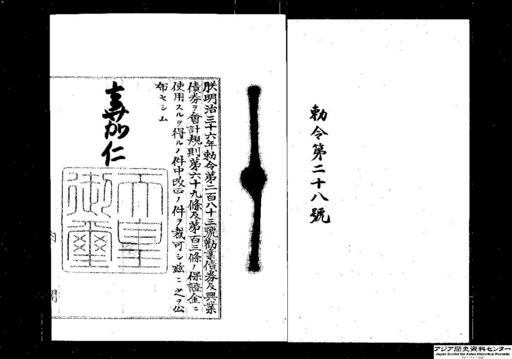 勅令第二十八號
朕明治三十六年勅令第二百八十三號勸業債券及興業
債券ヲ會計規則第六十九條及第百三條ノ保證金ニ
使用スルヲ得ルノ件中改正ノ件ヲ裁可シ玆ニ之ヲ公
布セシム
嘉仁
天皇
御璽
内閣
アジア歴史資料センター
Japan Center for Asian Historical Records